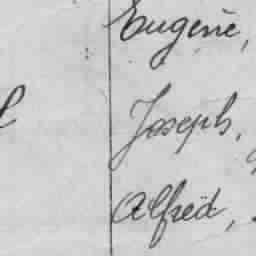 Eugène,
Joseph,
Alfred,